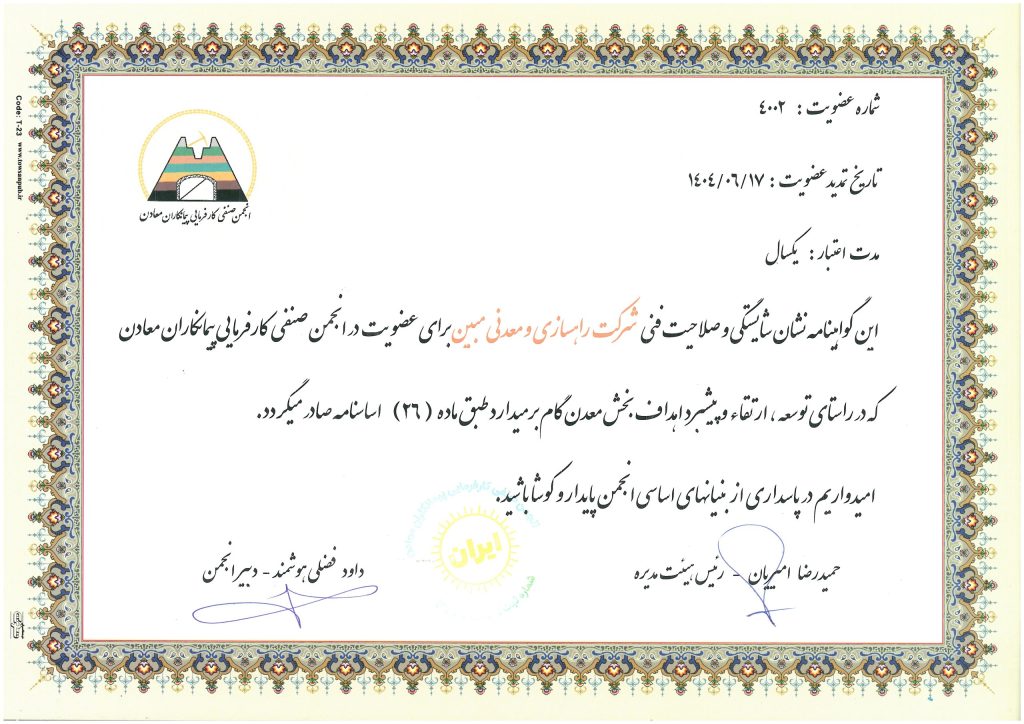 شماره عضویت : ۴۰۰۲
تاریخ تمدید عضویت : ۱۴۰۴/۰۶/۱۷
مدت اعتبار : یکسال
انجمن صنفی کارفرمایی پیمانکاران معادن
این گواهینامه نشان شایستگی و صلاحیت فنی شرکت راهسازی و معدنی مبین برای عضویت در انجمن صنفی کارفرمایی پیمانکاران معادن
که در راستای توسعه ، ارتقاء و پیشبرد اهداف بخش معدن گام برمیدارد طبق ماده ( ۲۶ ) اساسنامه صادر میگردد.
امیدواریم در پاسداری از بنیانهای اساسی انجمن پایدار و کوشا باشید.
حمیدرضا امیریان - رئیس هیئت مدیره
داود فضلی هوشمند - دبیر انجمن
ایران
Code: T-23 www.towsanpub.ir